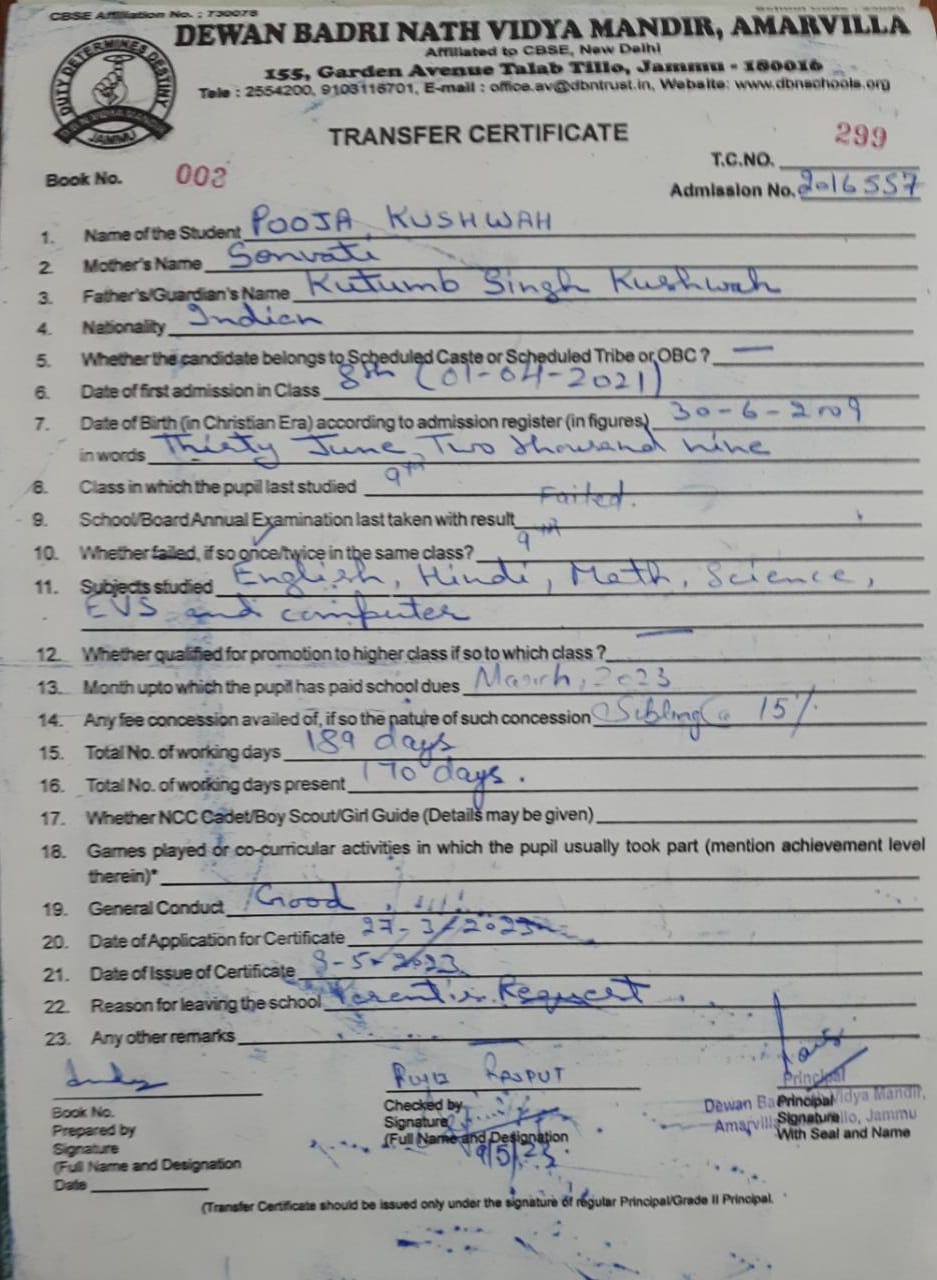 CBSE Affiliation No. : 730078
DEWAN BADRI NATH VIDYA MANDIR, AMARVILLA
Affiliated to CBSE, New Delhi
155, Garden Avenue Talab Tillo, Jammu - 180016
Tele : 2554200, 9103116701, E-mail : office.av@dbntrust.in, Website: www.dbnschools.org
DUTY DETERMINES DESTINY
JAMMU
TRANSFER CERTIFICATE
T.C.NO. 299
Book No. 002
Admission No. 2016557
1. Name of the Student POOJA KUSHWAH
2. Mother's Name Sonvati
3. Father's/Guardian's Name Kutumb Singh Kushwah
4. Nationality Indian
5. Whether the candidate belongs to Scheduled Caste or Scheduled Tribe or OBC ? —
6. Date of first admission in Class 8th (01-04-2021)
7. Date of Birth (in Christian Era) according to admission register (in figures) 30-6-2009
in words Thirty June, Two thousand nine
8. Class in which the pupil last studied 9th
9. School/Board Annual Examination last taken with result Failed.
10. Whether failed, if so once/twice in the same class? 9th
11. Subjects studied English, Hindi, Math, Science,
EVS and computer
12. Whether qualified for promotion to higher class if so to which class ? —
13. Month upto which the pupil has paid school dues March, 2023
14. Any fee concession availed of, if so the nature of such concession Sibling @ 15%
15. Total No. of working days 189 days
16. Total No. of working days present 170 days.
17. Whether NCC Cadet/Boy Scout/Girl Guide (Details may be given)
18. Games played or co-curricular activities in which the pupil usually took part (mention achievement level
therein)*
19. General Conduct Good
20. Date of Application for Certificate 27-3-2023
21. Date of Issue of Certificate 9-5-2023
22. Reason for leaving the school Parent's Request
23. Any other remarks —
RAJPUT
Principal
Book No.
Prepared by
Signature
(Full Name and Designation
Date
Checked by
Signature
(Full Name and Designation
9/5/23
Principal
Signature
With Seal and Name
Vidya Mandir,
Jammu
(Transfer Certificate should be issued only under the signature of regular Principal/Grade II Principal.